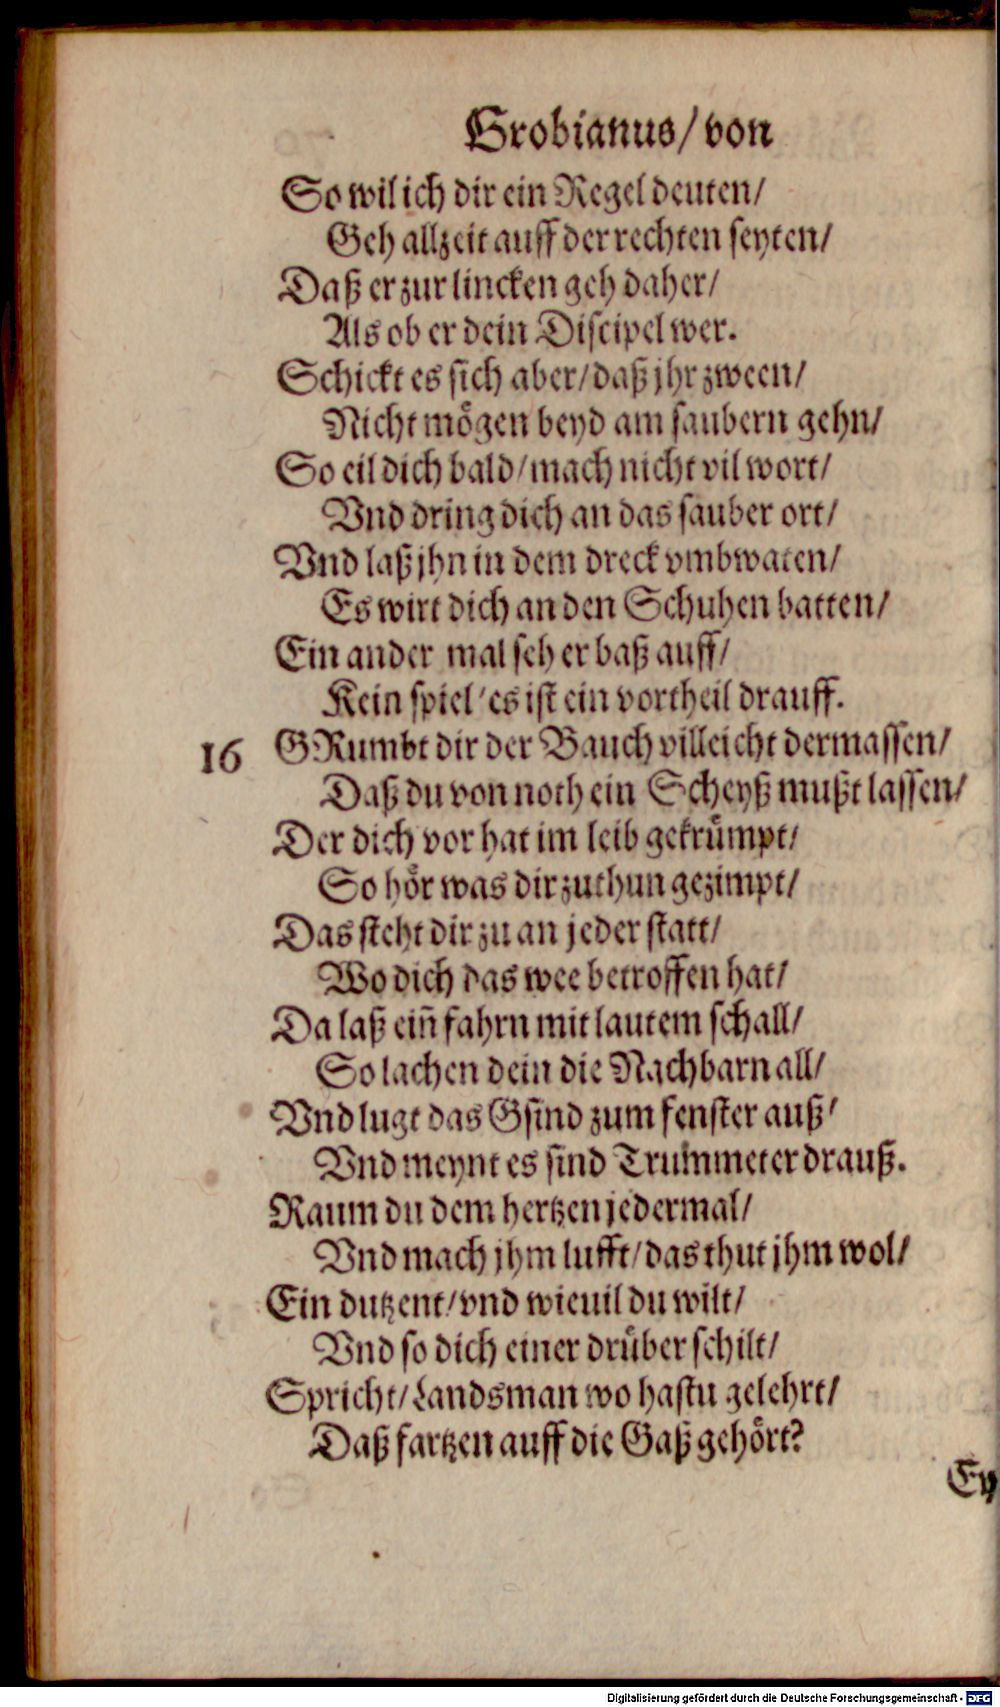 Grobianus/ von
So wil ich dir ein Regel deuten/
Geh allzeit auff der rechten seyten/
Daß er zur lincken geh daher/
Als ob er dein Discipel wer.
Schickt es sich aber/ daß jhr zween/
Nicht mögen beyd am saubern gehn/
So eil dich bald/ mach nicht vil wort/
Vnd dring dich an das sauber ort/
Vnd laß jhn in dem dreck vmbwaten/
Es wirt dich an den Schuhen batten/
Ein ander mal seh er baß auff/
Kein spiel/ es ist ein vortheil drauff.
16 GRumbt dir der Bauch villeicht dermassen/
Daß du von noth ein Scheyß mußt lassen/
Der dich vor hat im leib gekrümpt/
So hör was dir zuthun gezimpt/
Das steht dir zu an jeder statt/
Wo dich das wee betroffen hat/
Da laß ein̄ fahrn mit lautem schall/
So lachen dein die Nachbarn all/
Vnd lugt das Gsind zum fenster auß/
Vnd meynt es sind Trummeter drauß.
Raum du dem hertzen jedermal/
Vnd mach jhm lufft/ das thut jhm wol/
Ein dutzent/ vnd wieuil du wilt/
Vnd so dich einer drüber schilt/
Spricht/ Landsman wo hastu gelehrt/
Daß fartzen auff die Gaß gehört?
Ey
Digitalisierung gefördert durch die Deutsche Forschungsgemeinschaft - DFG